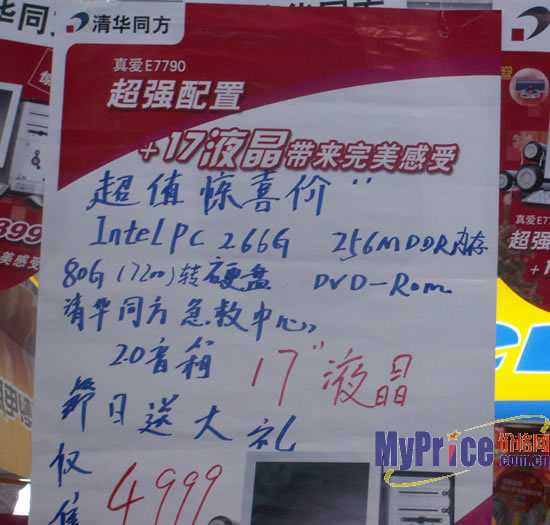 清华同方
真爱E7790
超强配置
+17液晶带来完美感受
超值惊喜价"
Intel PC 2.66G 256M DDR内存
80G(7200)转硬盘 DVD-Rom
清华同方急救中心,
2.0音箱 17"液晶
节日送大礼
仅售 4999
MyPrice价格网
.com.cn
清华同
899
受
真爱E77
超强